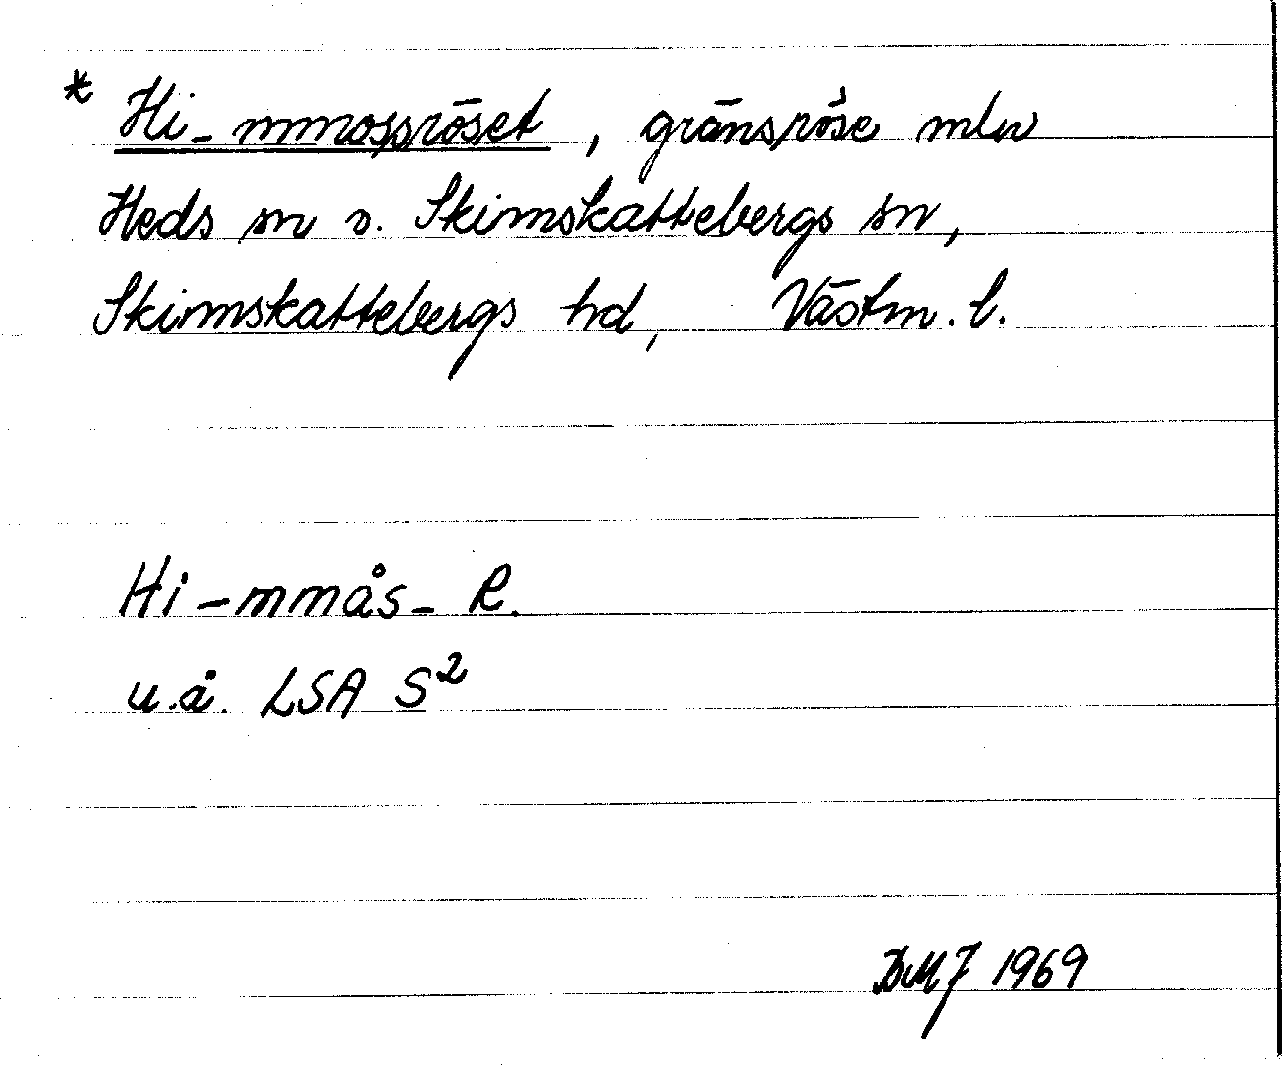 * Hi-mmossröset, gränsröse mln
Heds sn o. Skinnskattebergs sn,
Skinnskattebergs hd, Västm. l.
Hi-mmås- R.
u.å. LSA S²
BMJ 1969